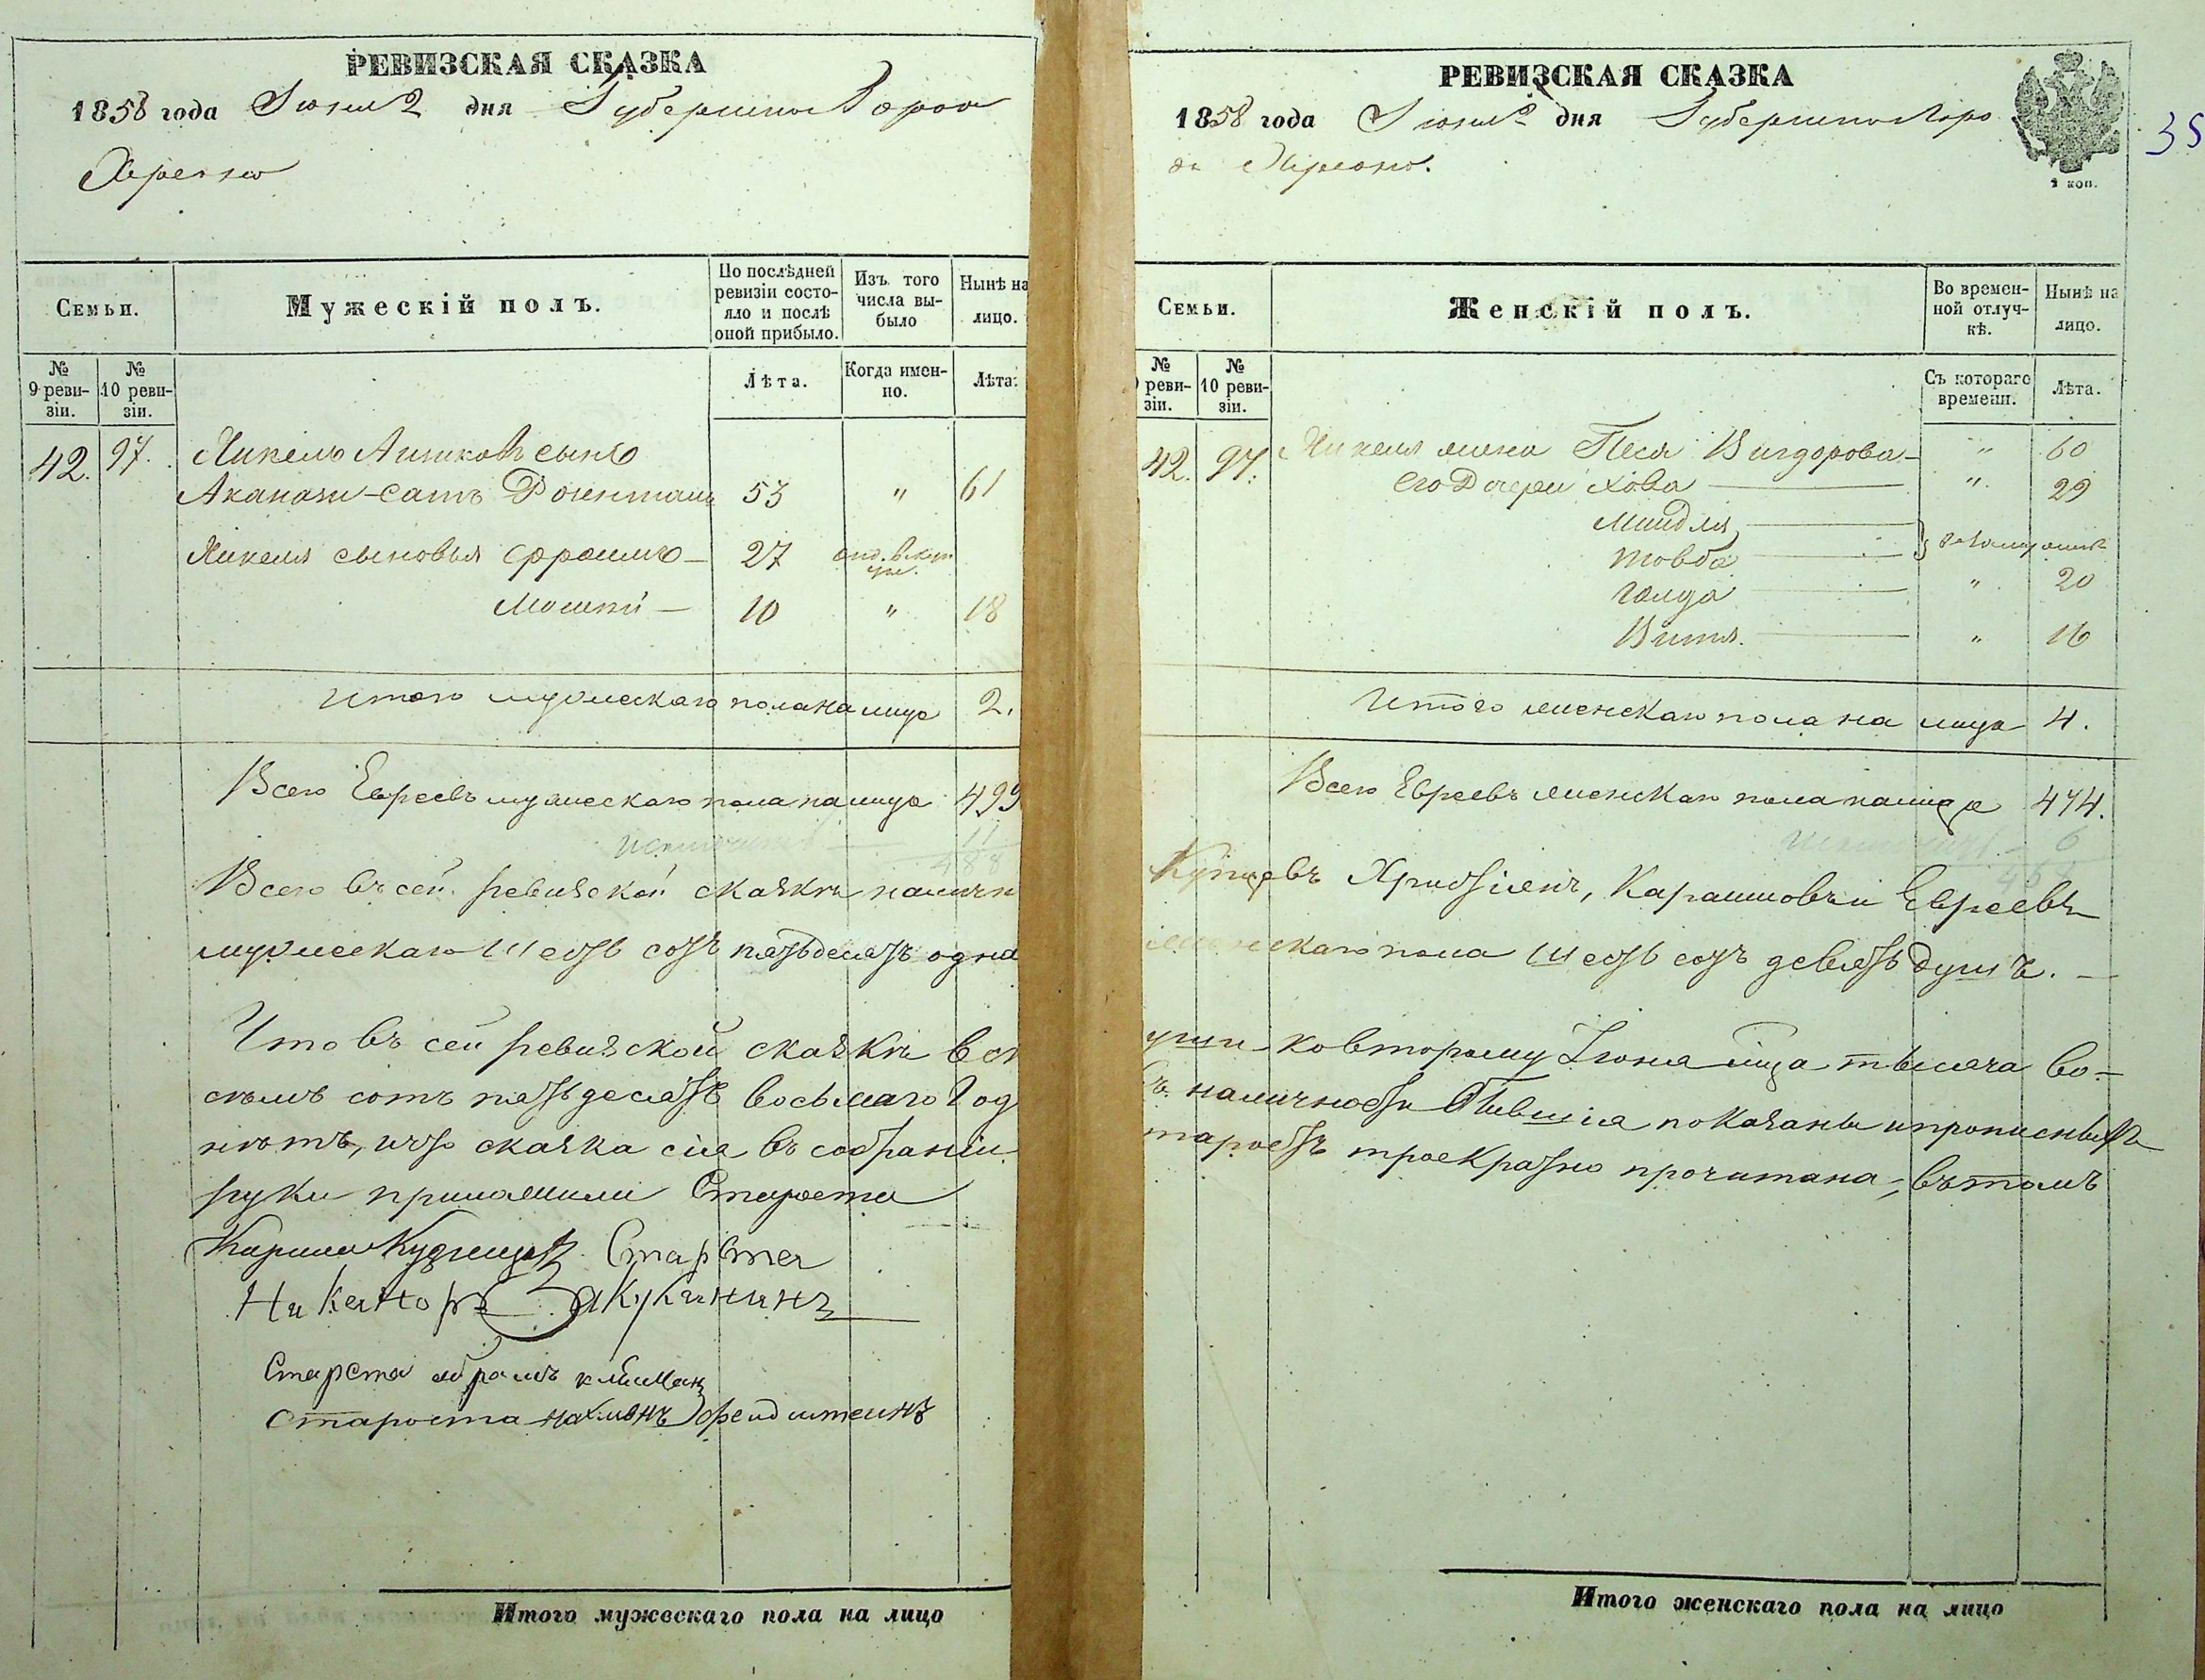 РЕВИЗСКАЯ СКАЗКА
1858 года Июня 2 дня Губернскаго Горо
Херсона
Семьи.
Мужескій полъ.
По послѣдней ревизіи состояло и послѣ оной прибыло.
Изъ того числа выбыло
Нынѣ на лицо.
№ 9 ревизіи.
№ 10 ревизіи.
Лѣта.
Когда именно.
Лѣта.
42. 97. Янкель сынъ
53 " 61
Янкеля сыновья Фроимъ — 27
Мошко — 10 " 18
Итого мужескаго пола на лицо 2.
Всего Евреевъ мужескаго пола на лицо 499
11
488
Всего въ сей ревизской сказкѣ наличн
мужескаго Шесть сотъ пятьдесятъ одна
Что въ сей ревизской сказкѣ вс
семъ сотъ пятьдесятъ восьмаго Год
нѣтъ, и что сказка сія въ собраніи
руки приложили Староста
Кузнецовъ Староста
Никаноръ Закуканинъ
Староста абрамъ
Староста нахманъ
Итого мужескаго пола на лицо
РЕВИЗСКАЯ СКАЗКА
1858 года Июня 2 дня Губернскаго Горо
да Херсона.
1 коп.
35
Семьи.
Женскій полъ.
Во временной отлучкѣ.
Нынѣ на лицо.
№ 9 ревизіи.
№ 10 ревизіи.
Съ котораго времени.
Лѣта.
42. 97. Янкеля жена Песя Вигдорова — " 60
Его Дочери Хова — " 29
Миндля —
Товба — } въ замужествѣ
Голда — " 20
Витя. — " 16
Итого женскаго пола на лицо 4.
Всего Евреевъ женскаго пола на лицо 474.
6
Купцевъ Христіянъ, Караимовъ и Евреевъ
женскаго пола Шесть сотъ девять Душъ. —
уши ко второму Іюня мца тысяча во-
въ наличности бывшія показаны и прописныхъ
таростъ троекратно прочитана, въ томъ
Итого женскаго пола на лицо